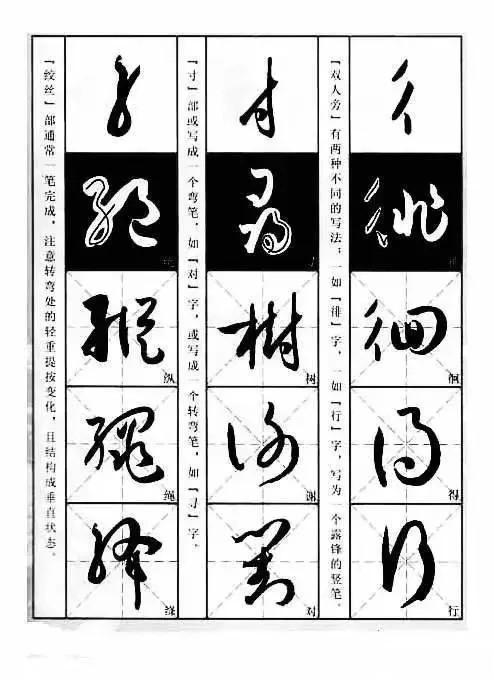 徘
徊
得
行
「双人旁」有两种不同的写法；一如「徘」字，一如「行」字，写为一个露锋的竖笔。
寸
寻
树
谢
对
「寸」部或写成一个弯笔，如「对」字，或写成一个转弯笔，如「寻」字。
纵
绳
「绞丝」部通常一笔完成，注意转弯处的轻重提按变化，且结构成垂直状态。